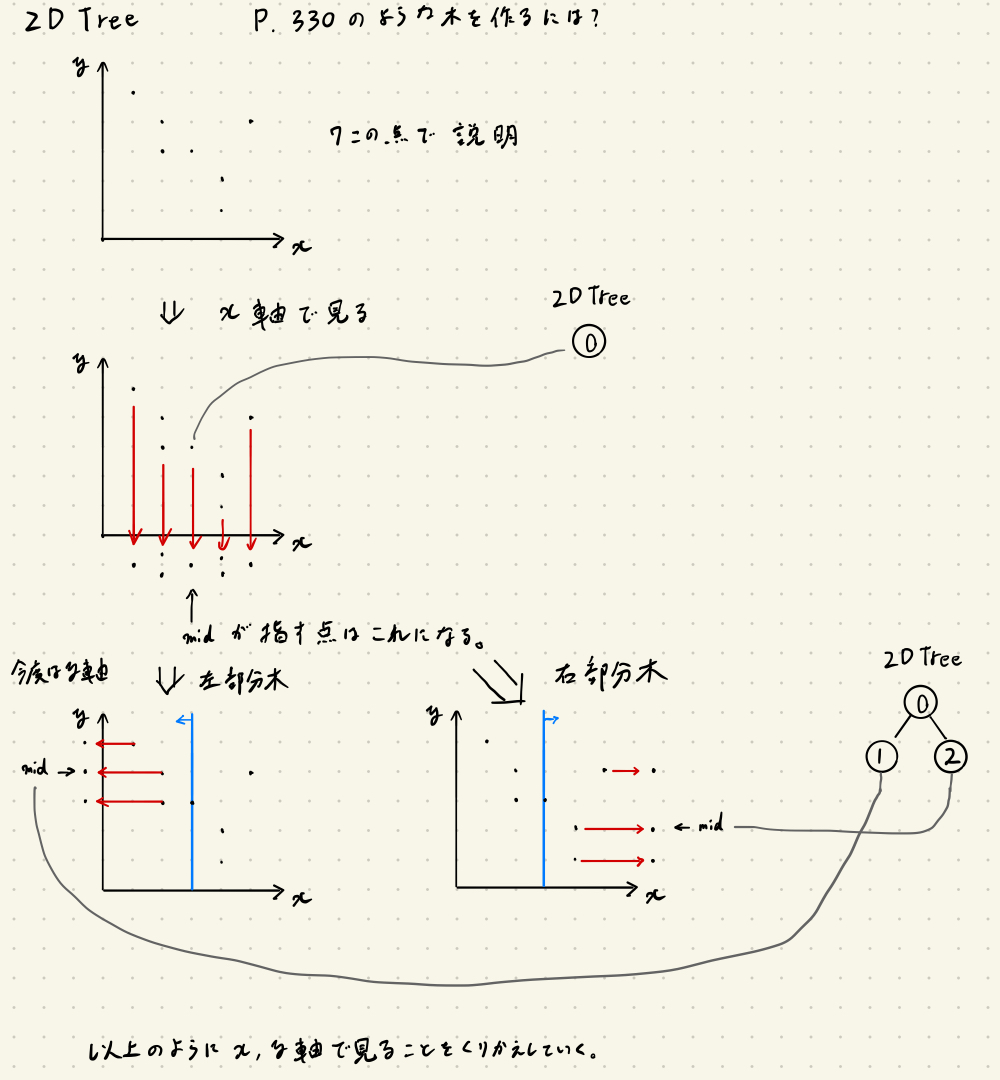 2D Tree
P. 330 のような木を作るには?
y
7この点で説明
x
⇓ x 軸で見る
2D Tree
0
y
x
mid が指す点はこれになる。
今度はy軸
左部分木
右部分木
2D Tree
0
1 2
y
mid →
x
y
← mid
x
以上のように x, y軸で見ることをくりかえしていく。